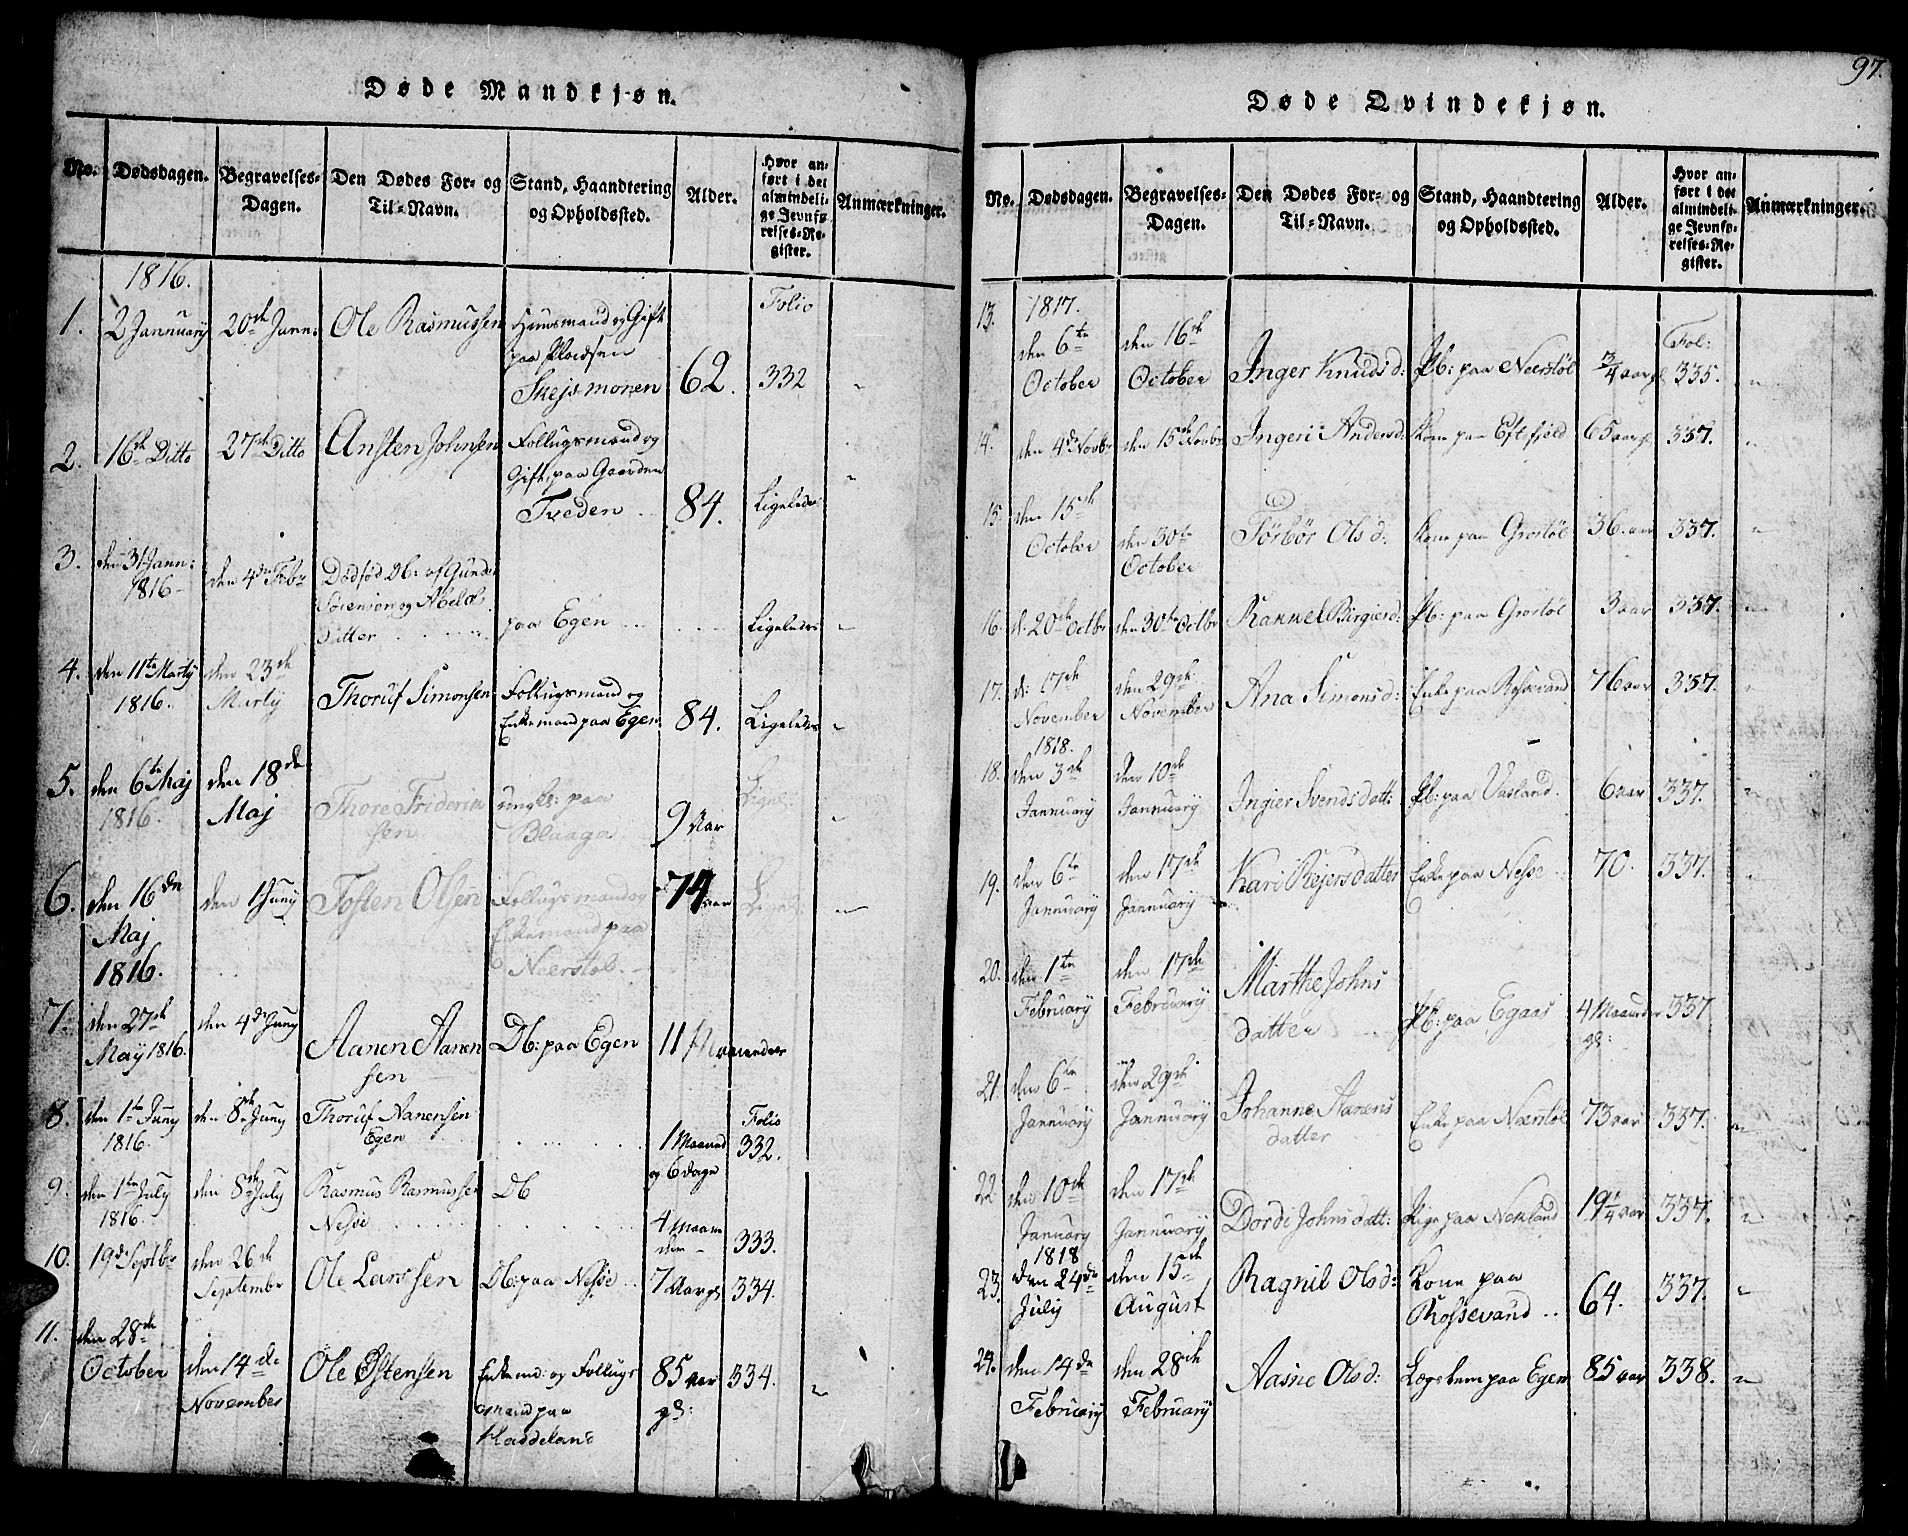 97.
Døde Mandkjøn.
No. Dødsdagen. Begravelses-Dagen. Den Dødes For- og Til-Navn. Stand, Haandtering og Opholdssted. Alder. Hvor anført i det almindelige Jevnførelses-Register. Anmærkninger.
1816.
1. 2 Jannuarÿ 20de Jann: Ole Rasmussen Huusmand og Gift paa Pladsen Skejsmonen 62. Folio 332 "
2. 16de Ditto 27de Ditto Ansten Johnsen Follugsmand og Gift, paa Gaarden Tveden 84. Ligeledes "
3. den 31 Jann: 1816 den 4de Febr Dødfød Db: af Gunder Sørensen og Abel Ols Datter paa Egen Ligeledes "
4. den 11te Martÿ 1816. den 23de Martÿ Thoruf Simonsen Follugsmand og Enkemand paa Egen 84. Ligeledes "
5. den 6te Maj 1816. den 18de Maj Thore Friderichsen ungk: paa Blaaga 9 Aar Ligel: "
6. den 16de Maj 1816. den 1 Junÿ Tosten Olsen Follugsmand og Enkemand paa Neerstøl 74 aar Ligeled: "
7. den 27de Maÿ 1816. den 4de Junÿ Aanen Aanensen Db: paa Egen 11 Maaneder
8. den 1te Junÿ 1816. den 8de Junÿ Thoruf Aanensen Egen 1 Maaned og 6 dage Folio 332.
9. den 1te Julÿ 1816. den 8de Julÿ Rasmus Rasmussen Nesse Db 4 Maaneder 333.
10. 19de Septbr den 26de September Ole Larssen Db: paa Nesse 7 Aar gl 334.
11. den 28de October den 14de November Ole Østensen Enkemd: og Follugsmand paa Haddeland 85 aar gl: 334. "
Døde Qvindekjøn.
No. Dødsdagen. Begravelses-Dagen. Den Dødes For- og Til-Navn. Stand, Haandtering og Opholdssted. Alder. Hvor anført i det almindelige Jevnførelses-Register. Anmærkninger.
1817.
13. den 6te October den 16de October Inger Knudsd: Pb: paa Neerstøl 3/4 aar gl Fol: 335. "
14. den 4de Novbr den 15de Novbr Ingeri Andersd: Kone paa Eftefjeld 65 aar gl 337. "
15. den 15de October den 30te October Tørbør Olsd: Kone paa Grostøl 36. aar 337. "
16. d: 20de Octbr den 30te Octbr Rannel Birgierd: Pb: paa Grostøl 3 aar 337. "
17. d: 17de November den 29de November Ana Simonsd: Enke paa Rossevand 76 aar 337. "
1818.
18. den 3de Jannuarÿ den 10de Jannuarÿ Ingier Svendsdatt: Pb: paa Vasland. 6 aar 337. "
19. den 6te Jannuarÿ den 17de Jannuarÿ Kari Rejersdatter Enke paa Nesse 70. 337. "
20. den 1te Februarÿ den 17de Februarÿ Marthe Johnsdatter Pb: paa Egaas 4 Maaneder gl: 337
21. den 6te Januarÿ den 29de Jannuarÿ Johanne Aanensdatter Enke paa Neerstøl 73 aar 337. "
22. den 10de Januarÿ den 17de Jannuarÿ Dordi Johnsdatt: Pige paa Nekland 19 1/4 aar 337. "
1818
23. den 24de Julÿ den 15de August Ragnil Olsd: Kone paa Rossevand 64. 337. "
24. den 14de Februarÿ den 28de Februarÿ Aasne Olsd: Lægslem paa Egen 85 aar 338. "